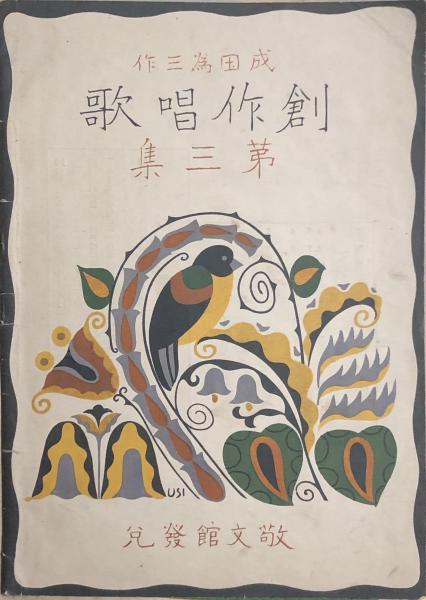 成田為三作
創作唱歌
苐三集
USI
敬文館發兌